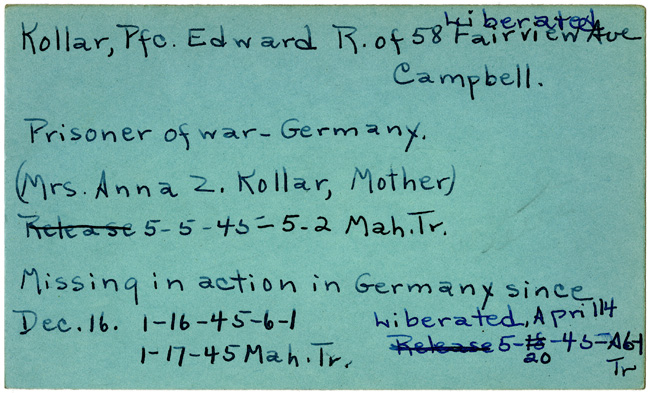 Liberated
Kollar, Pfc. Edward R. of 58 Fairview Ave
Campbell.
Prisoner of war- Germany.
(Mrs. Anna Z. Kollar, Mother)
Release 5-5-45=5-2 Mah.Tr.
Missing in action in Germany since
Dec.16. 1-16-45-6-1
Liberated, April 14
1-17-45 Mah.Tr.
Release 5-18-45=A6-1
20
Tr